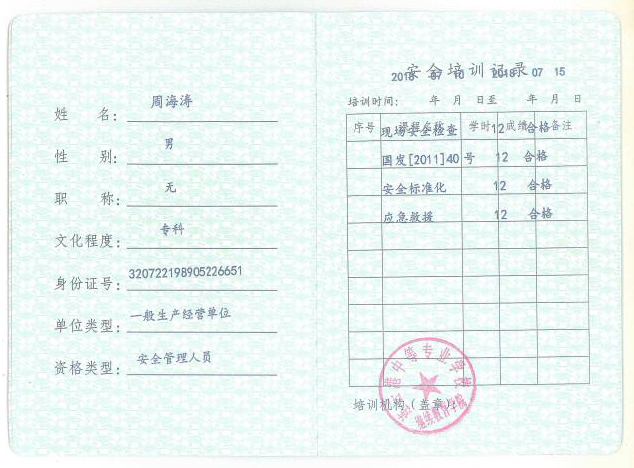 姓 名: 周海涛
性 别: 男
职 称: 无
文化程度: 专科
身份证号: 320722198905226651
单位类型: 一般生产经营单位
资格类型: 安全管理人员
安全培训记录
2018 07 10 2018 07 15
培训时间: 年 月 日至 年 月 日
序号 课程名称 学时 成绩 备注
现场安全检查 12 合格
国发[2011]40 号 12 合格
安全标准化 12 合格
应急救援 12 合格
港中等专业学校
继续教育学院
培训机构(盖章):